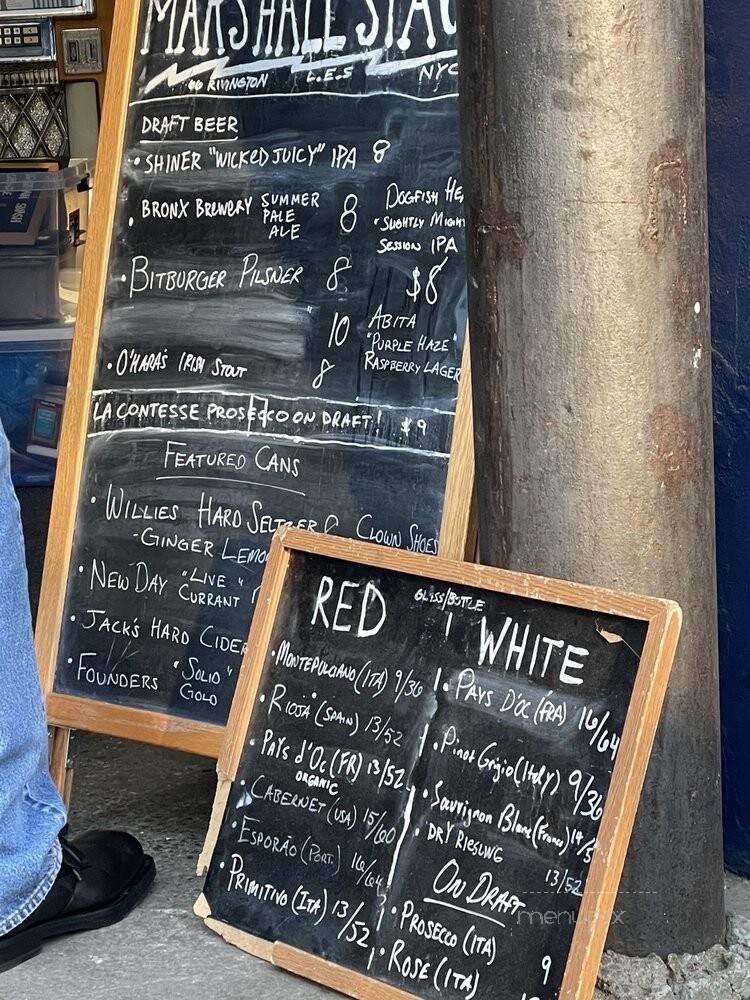 MARSHALL STAC
66 RIVINGTON L.E.S NYC
DRAFT BEER
• SHINER "WICKED JUICY" IPA 8
• BRONX BREWERY SUMMER
PALE
ALE 8
• BITBURGER PILSNER 8
10
• O'HARA'S IRISH STOUT 8
DOGFISH HE
"SLIGHTLY MIGH
SESSION IPA
$8
ABITA
"PURPLE HAZE"
RASPBERRY LAGER
LA CONTESSE PROSECCO ON DRAFT! $9
FEATURED CANS
• WILLIES HARD SELTZER
- GINGER LEMO
CLOWN SHOES
• NEW DAY "LIVE"
CURRANT
• JACK'S HARD CIDER
• FOUNDERS "SOLID"
GOLD
GLASS/BOTTLE
RED
• MONTEPULCIANO (ITA) 9/36
• RIOJA (SPAIN) 13/52
• PAYS d'OC (FR) 13/52
ORGANIC
• CABERNET (USA) 15/60
• ESPORÃO (PORT.) 16/64
• PRIMITIVO (ITA) 13/52
WHITE
• PAYS D'OC (FRA) 16/64
• Pinot Grigio (Italy) 9/36
• Sauvignon Blanc (France) 14/5
• DRY RIESLING
13/52
ON DRAFT
• PROSECCO (ITA) 9
• ROSE (ITA)
menupix